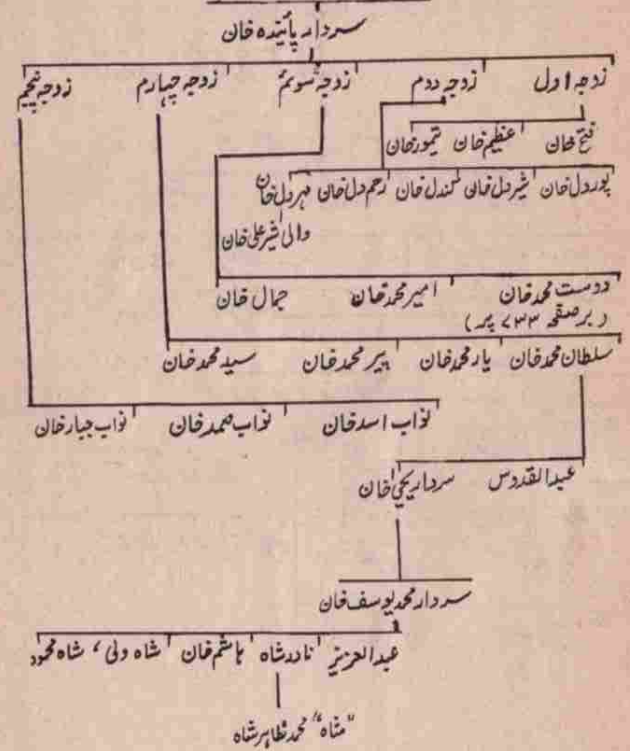 سردار پائیندہ خان
زوجہ اول زوجہ دوم زوجہ سوئم زوجہ چہارم زوجہ پنجم
فتح خان عظیم خان تیمور خان
پوردل خان شیردل خان کندل خان رحمدل خان مہردل خان
والی شیر علی خان
دوست محمد خان امیر محمد خان جمال خان
(بر صفحہ ۷۳۳ پر)
سلطان محمد خان یار محمد خان پیر محمد خان سید محمد خان
نواب اسد خان نواب صمد خان نواب جبار خان
عبدالقدوس سردار یحییٰ خان
سردار محمد یوسف خان
عبدالعزیز نادر شاہ ہاشم خان شاہ ولی، شاہ محمود
"شاہ" محمد ظاہر شاہ